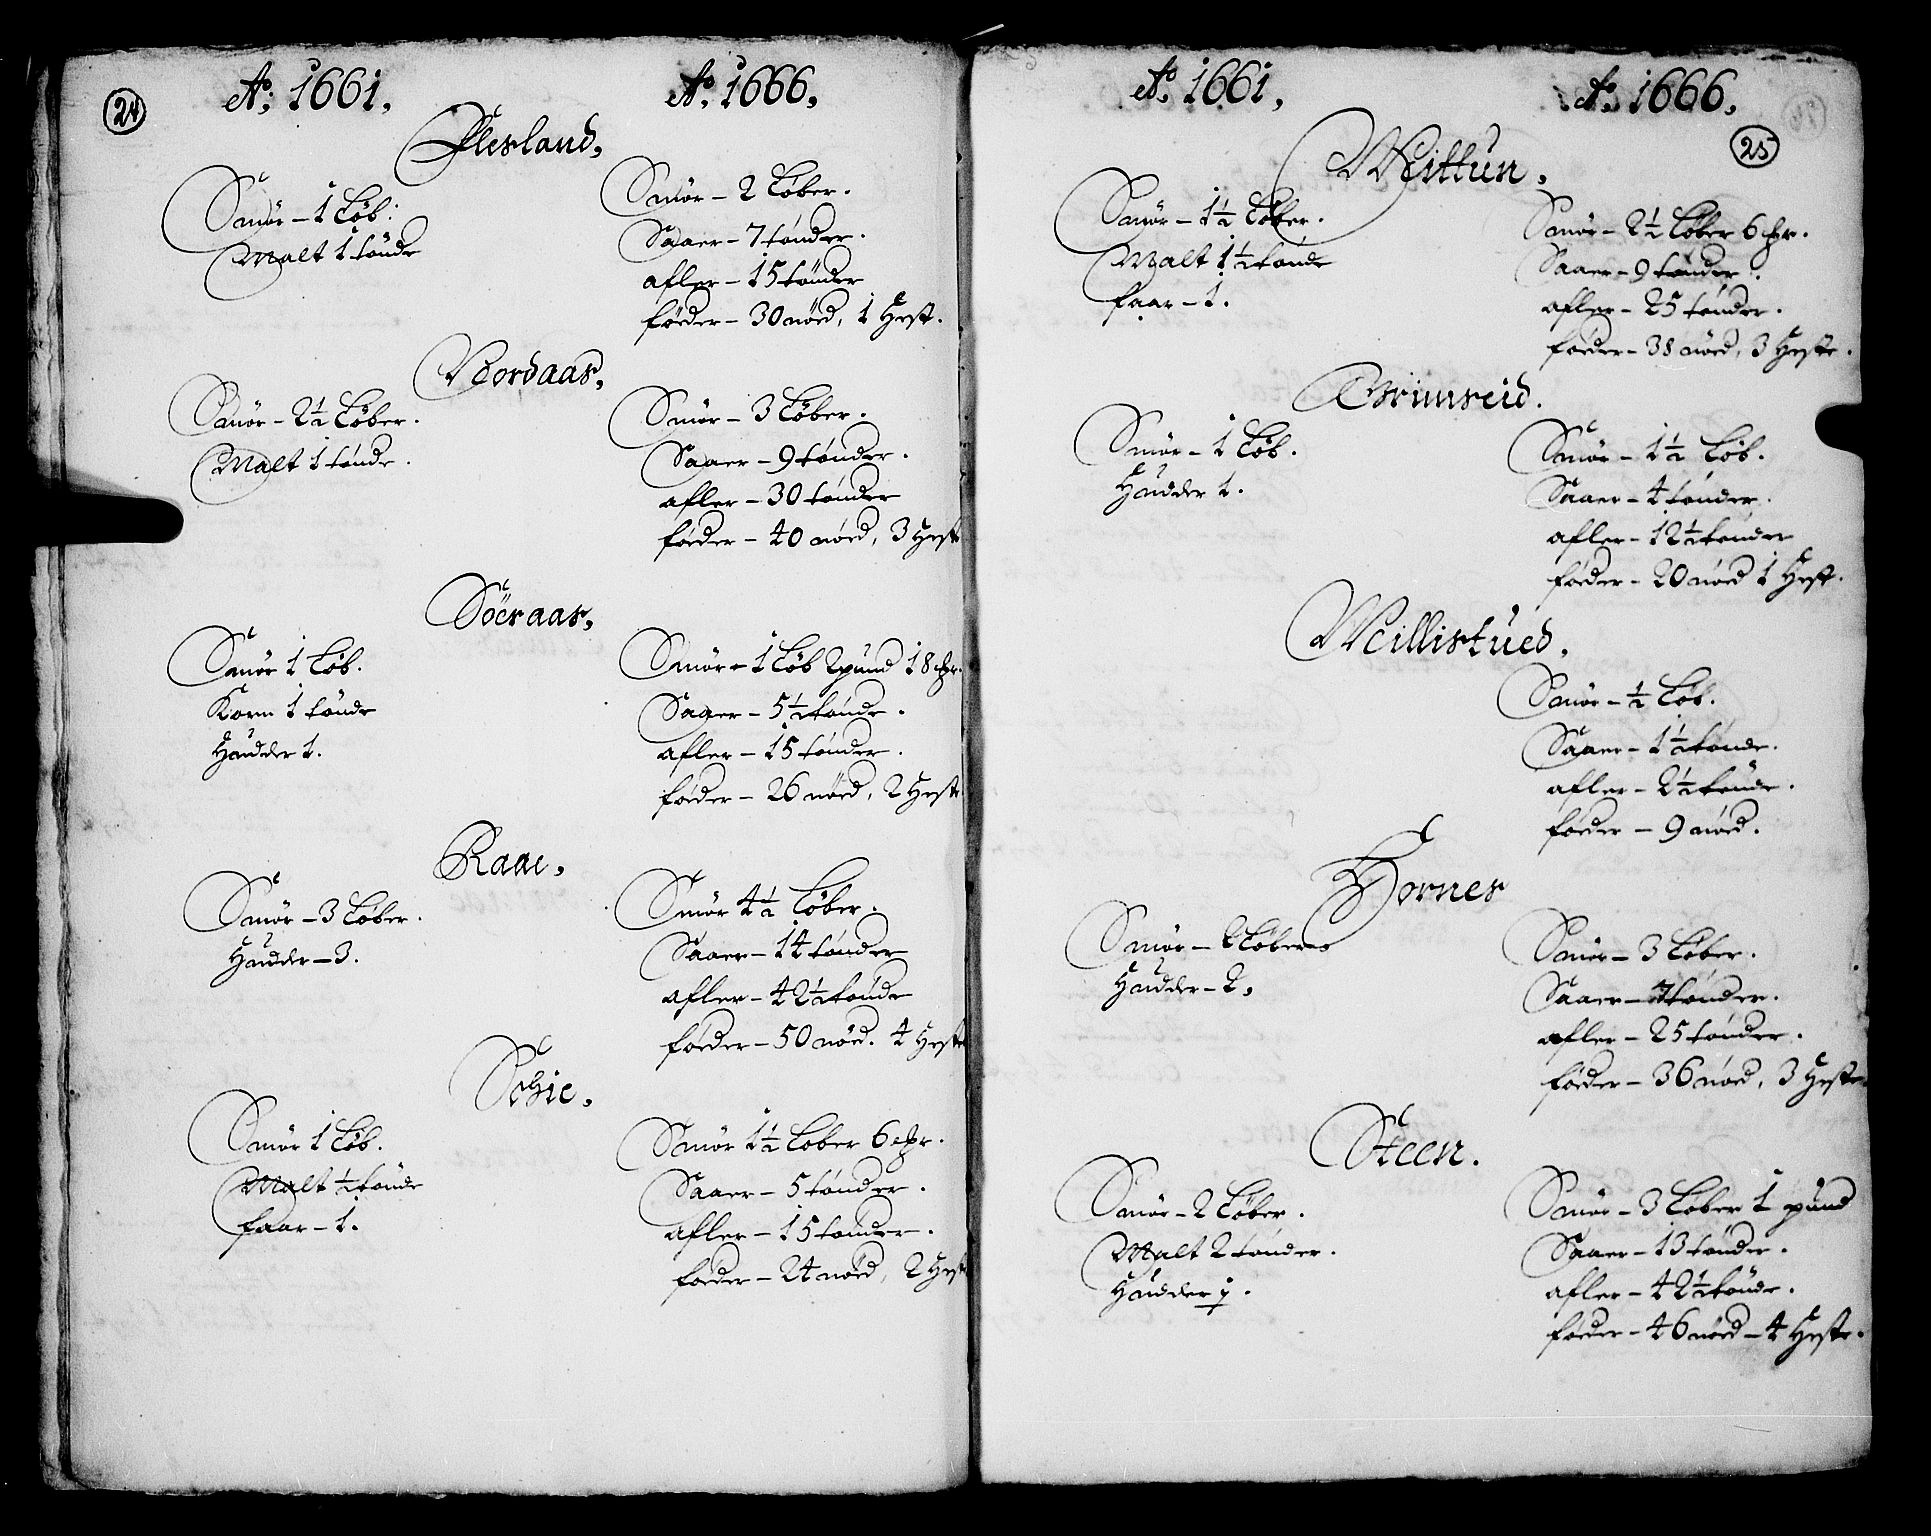 24
Ao. 1661. Ao. 1666.
Flesland.
Smør – 1 Løb:
Malt 1 tønde
Smør – 2 Løber.
Saaer – 7 tønder.
afler – 15 tønder
føeder – 30 nøed, 1 Hest.
Nordaas.
Smør – 2½ Løber.
Malt 1 tønde.
Smør – 3 Løber.
Saaer – 9 tønder.
afler – 30 tønder
føeder – 40 nøed, 3 Hest
Söeraas.
Smør 1 Løb.
Korn 1 tønde
Huudder 1.
Smør – 1 Løb 2 pund 18 mr.
Saaer – 5½ tønde.
afler – 15 tønder.
føeder – 26 nøed, 2 Heste
Raae.
Smør – 3 Løber.
Huudder – 3.
Smør 4½ Løber.
Saaer – 14 tønder
afler – 42½ tønde
føeder – 50 nøed. 4 Heste
Schie.
Smør 1 Løb.
Malt ½ tønde
faar – 1.
Smør 1½ Løber 6 mr.
Saaer – 5 tønder.
afler – 15 tønder.
føeder – 24 nøed, 2 Hest
25
Ao. 1661. Ao. 1666.
Mittun.
Smør – 1½ Løber.
Malt 1½ tønde
faar – 1.
Smør – 2½ Løber 6 mr.
Saaer – 9 tønder.
afler – 25 tønder.
føeder – 38 nøed, 3 Heste.
Grimseid.
Smør – 1 Løb.
Huudder 1.
Smør – 1½ Løb.
Saaer – 4 tønder.
afler – 12½ tønder
føeder – 20 nøed 1 Hest.
Millistued.
Smør – ½ Løb.
Saaer – 1½ tønde.
afler – 2½ tønde.
føeder – 9 nøed.
Hornes
Smør – 2 Løber
Huudder – 2.
Smør – 3 Løber.
Saaer – 7 tønder.
afler – 25 tønder.
føeder – 36 nøed, 3 Heste
Steen.
Smør – 2 Løber.
Malt 2 tønder.
Huudder 1.
Smør – 3 Løber 1 pund
Saaer – 13 tønder.
afler – 42½ tønde.
føeder – 46 nøed – 4 Heste.